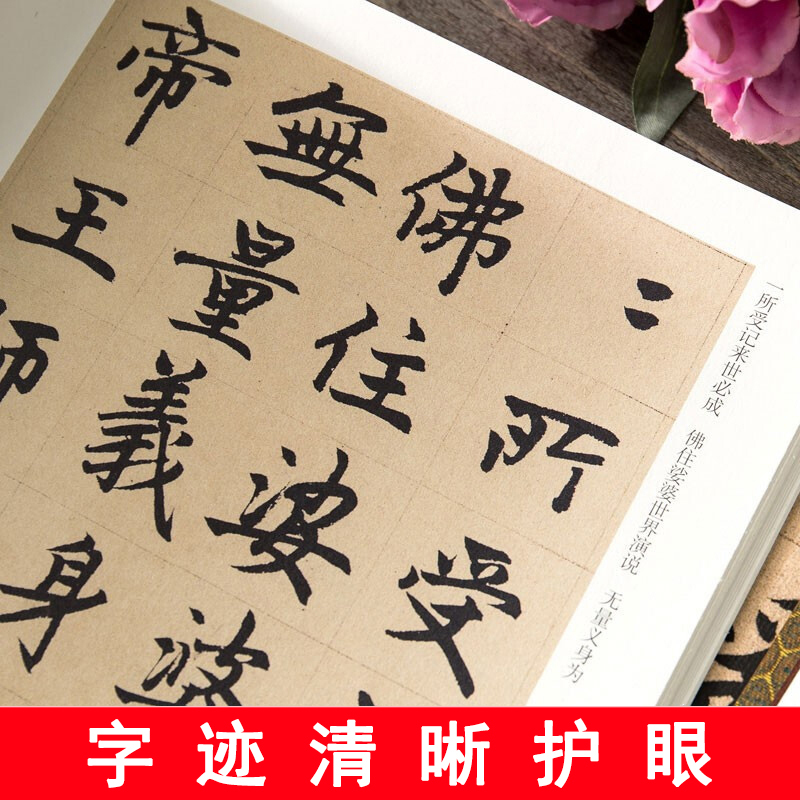 一所受记来世必成 佛住娑婆世界演说 无量义身为
二所受
佛住娑婆
無量義身
帝王师
字迹清晰护眼